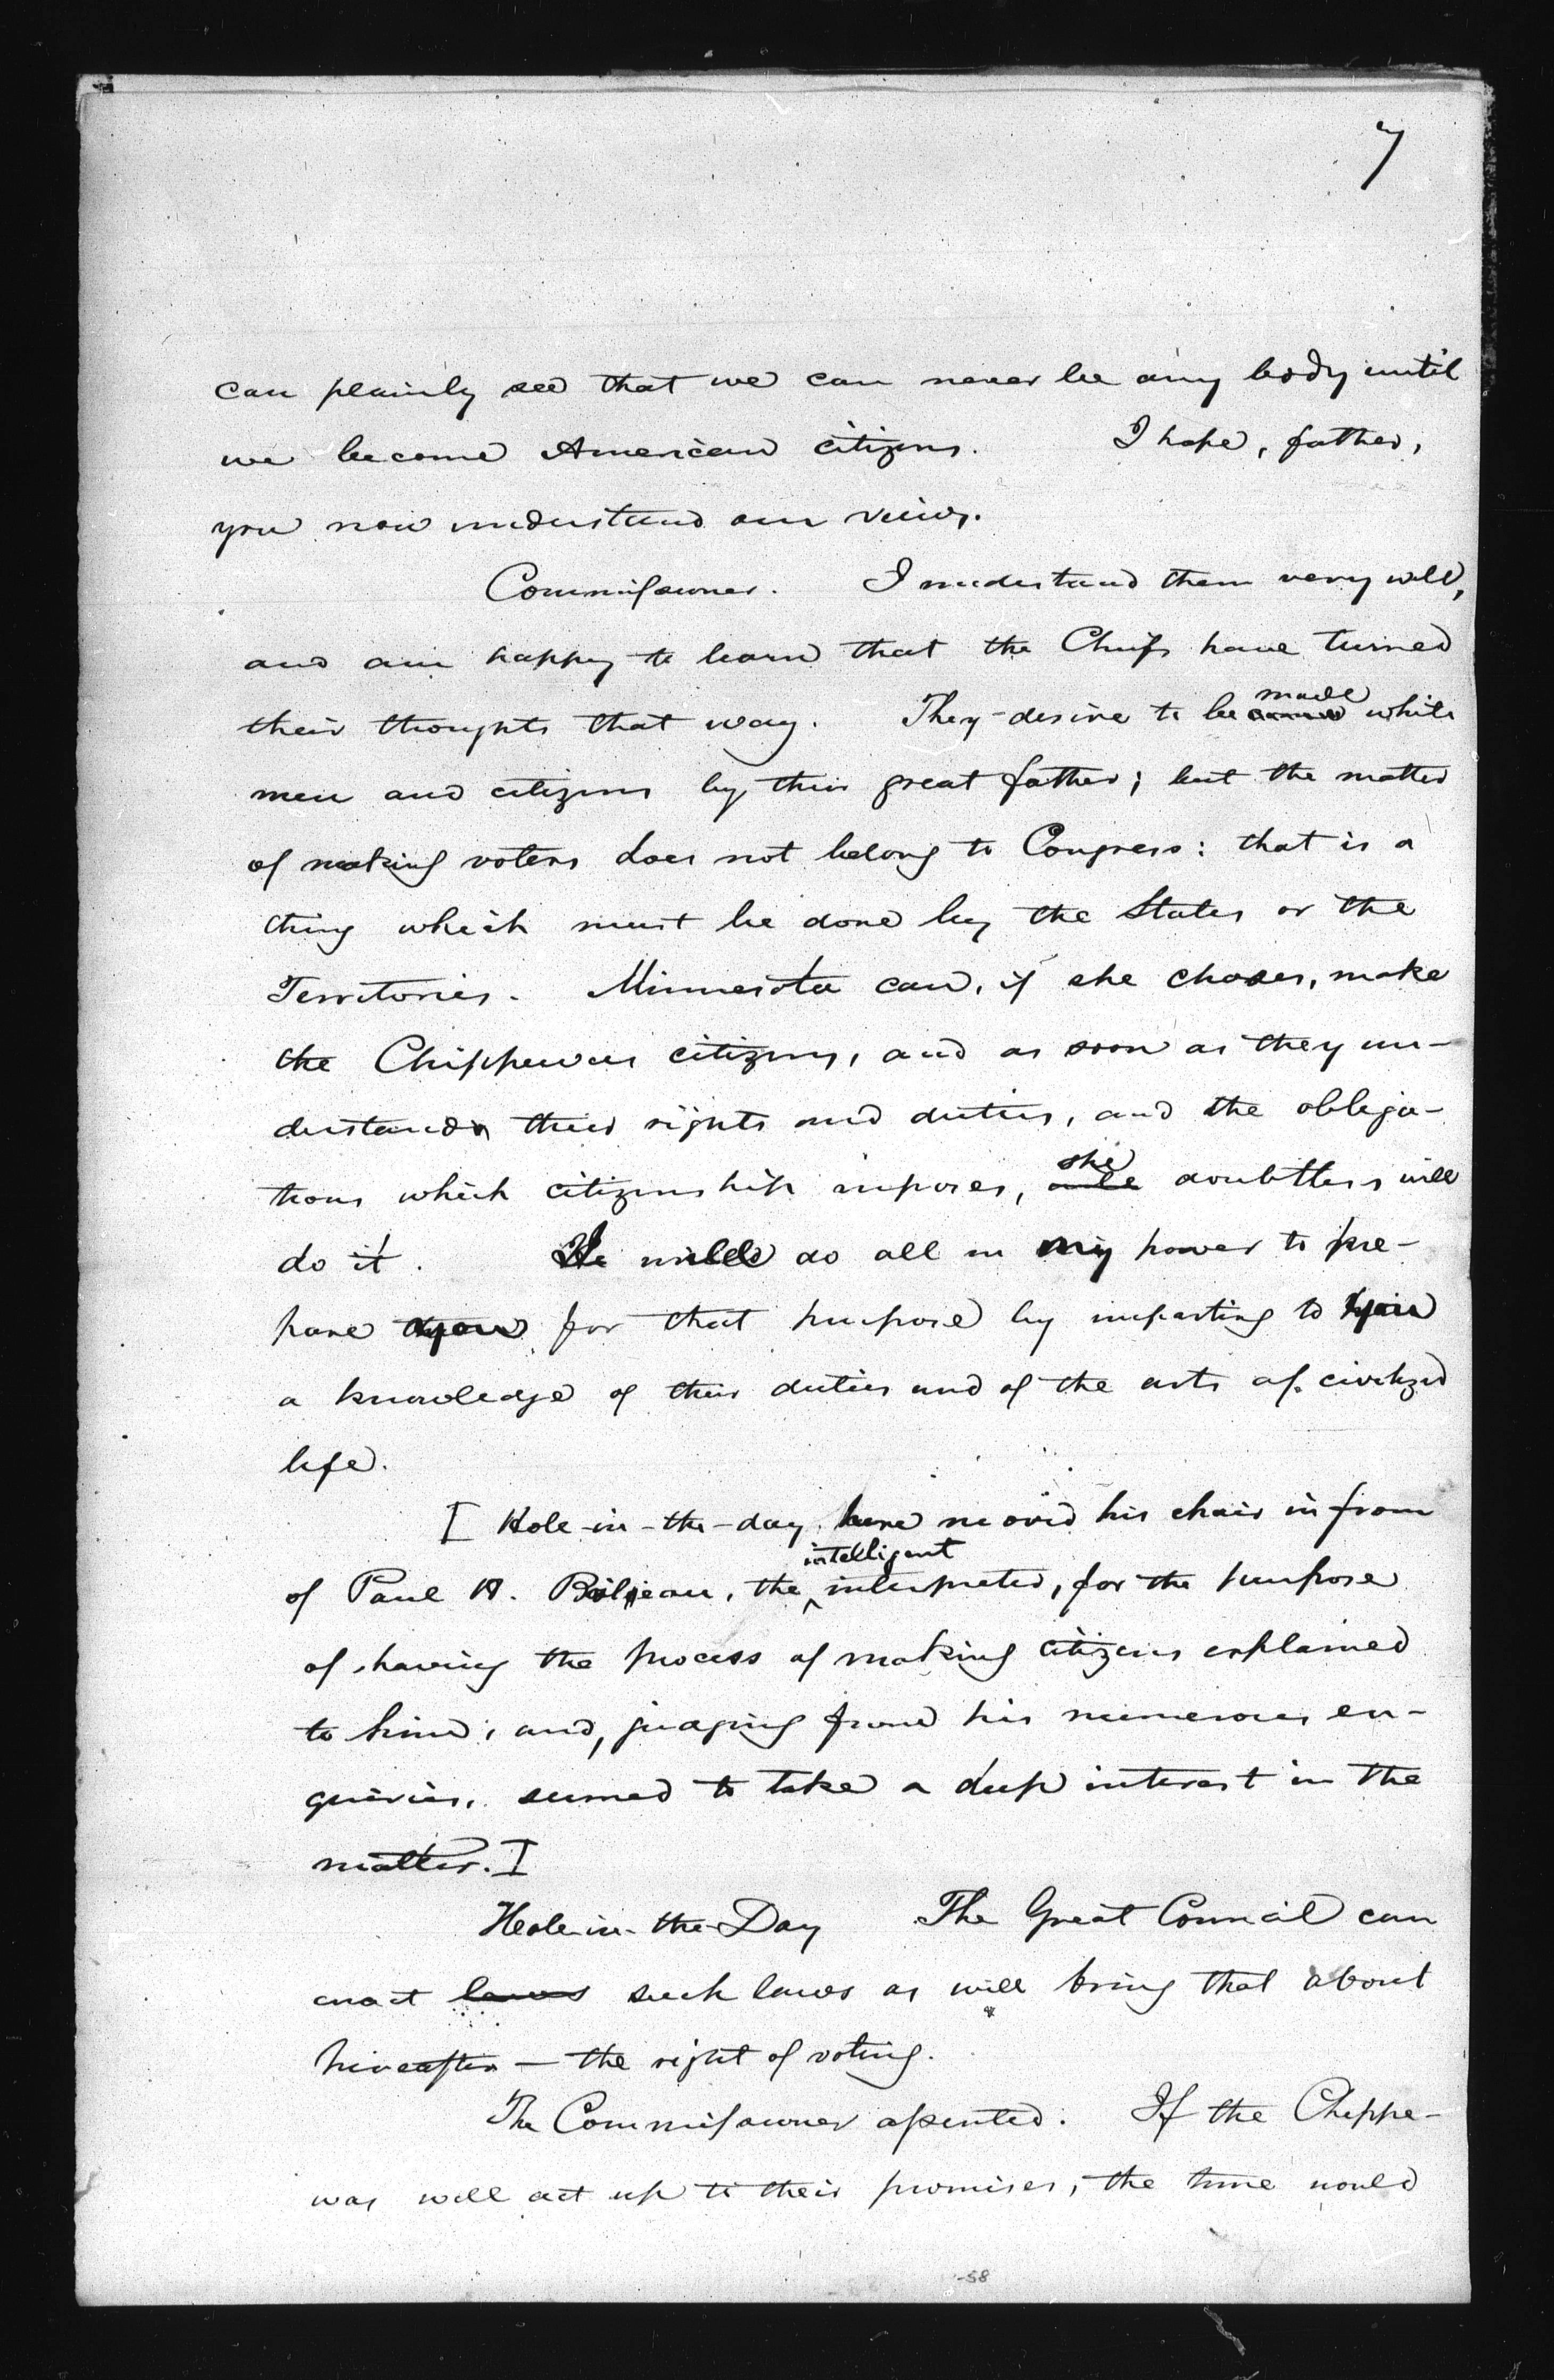 7
can plainly see that we can never be any body until
we become American citizens. I hope, father,
you now understand our views.
Commissioner. I understand them very well,
and am happy to learn that the Chiefs have turned
their thoughts that way. They desire to be made white
men and citizens by their great father; but the matter
of making voters does not belong to Congress: that is a
thing which must be done by the States or the
Territories. Minnesota can, if she choses, make
the Chippewas citizens, and as soon as they un-
derstand their rights and duties, and the obliga-
tions which citizenship imposes, she doubtless will
do it. I will do all in my power to pre-
pare you for that purpose by imparting to you
a knowledge of their duties and of the arts of civilized
life.
[Hole-in-the-day here moved his chair in from
of Paul H. Beaulieau, the intelligent interpreter, for the purpose
of having the process of making citizens explained
to him; and, judging from his numerous en-
quiries, seemed to take a deep interest in the
matter.]
Hole-in-the-Day The Great Council can
enact laws such laws as will bring that about
hereafter — the right of voting.
The Commissioner assented. If the Chippe-
was will act up to their promises, the time would
-58